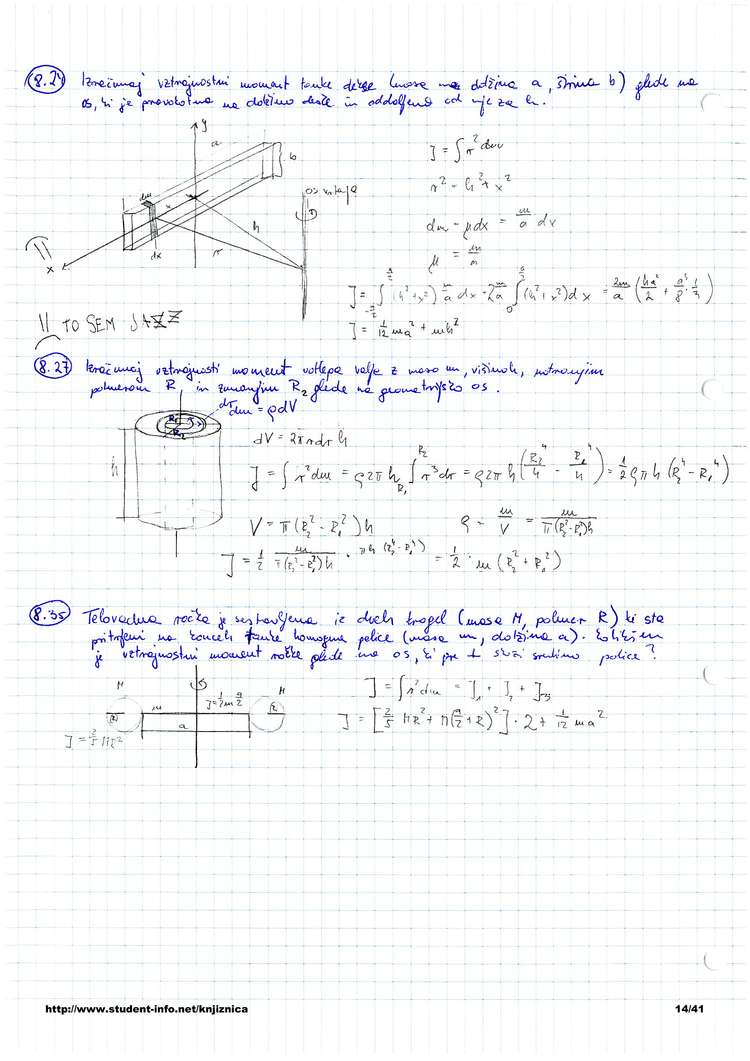 8.24 Izračunaj vztrajnostni moment tanke deske (masa m, dolžina a, širina b) glede na
os, ki je pravokotna na dolžino deske in oddaljena od nje za h.
y
a
b
dm
x
os vrtenja
h
r
dx
x
J = ∫ r² dm
r² = h² + x²
dm = μdx = m/a dx
μ = m/a
J = ∫_{-a/2}^{a/2} (h² + x²) m/a dx = 2 m/a ∫_0^{a/2} (h² + x²) dx = 2m/a (ha²/2 + a³/8 · 1/3)
J = 1/12 ma² + mh²
TO SEM JAZZ
8.27 Izračunaj vztrajnosti moment votlega valja z maso m, višino h, notranjim
polmerom R₁ in zunanjim R₂ glede na geometrijsko os.
dr
dm = ρdV
R₁
R₂
h
dV = 2πrdr h
J = ∫ r² dm = ρ2πh ∫_{R₁}^{R₂} r³ dr = ρ2πh (R₂⁴/4 - R₁⁴/4) = 1/2 ρπh (R₂⁴ - R₁⁴)
V = π(R₂² - R₁²)h
ρ = m/V = m/π(R₂² - R₁²)h
J = 1/2 m/π(R₂² - R₁²)h · πh (R₂⁴ - R₁⁴) = 1/2 · m (R₂² + R₁²)
8.35 Telovadna ročka je sestavljena iz dveh krogel (masa M, polmer R) ki sta
pritrjeni na koncih tanke homogene palice (masa m, dolžina a). Kolikšen
je vztrajnostni moment ročke glede na os, ki gre ⊥ skozi sredino palice?
M
M
R
m
R
a
J = 2/5 MR²
J = ∫ r² dm = J₁ + J₂ + J₃
J = [2/5 MR² + M(a/2 + R)²] · 2 + 1/12 ma²
http://www.student-info.net/knjiznica
14/41